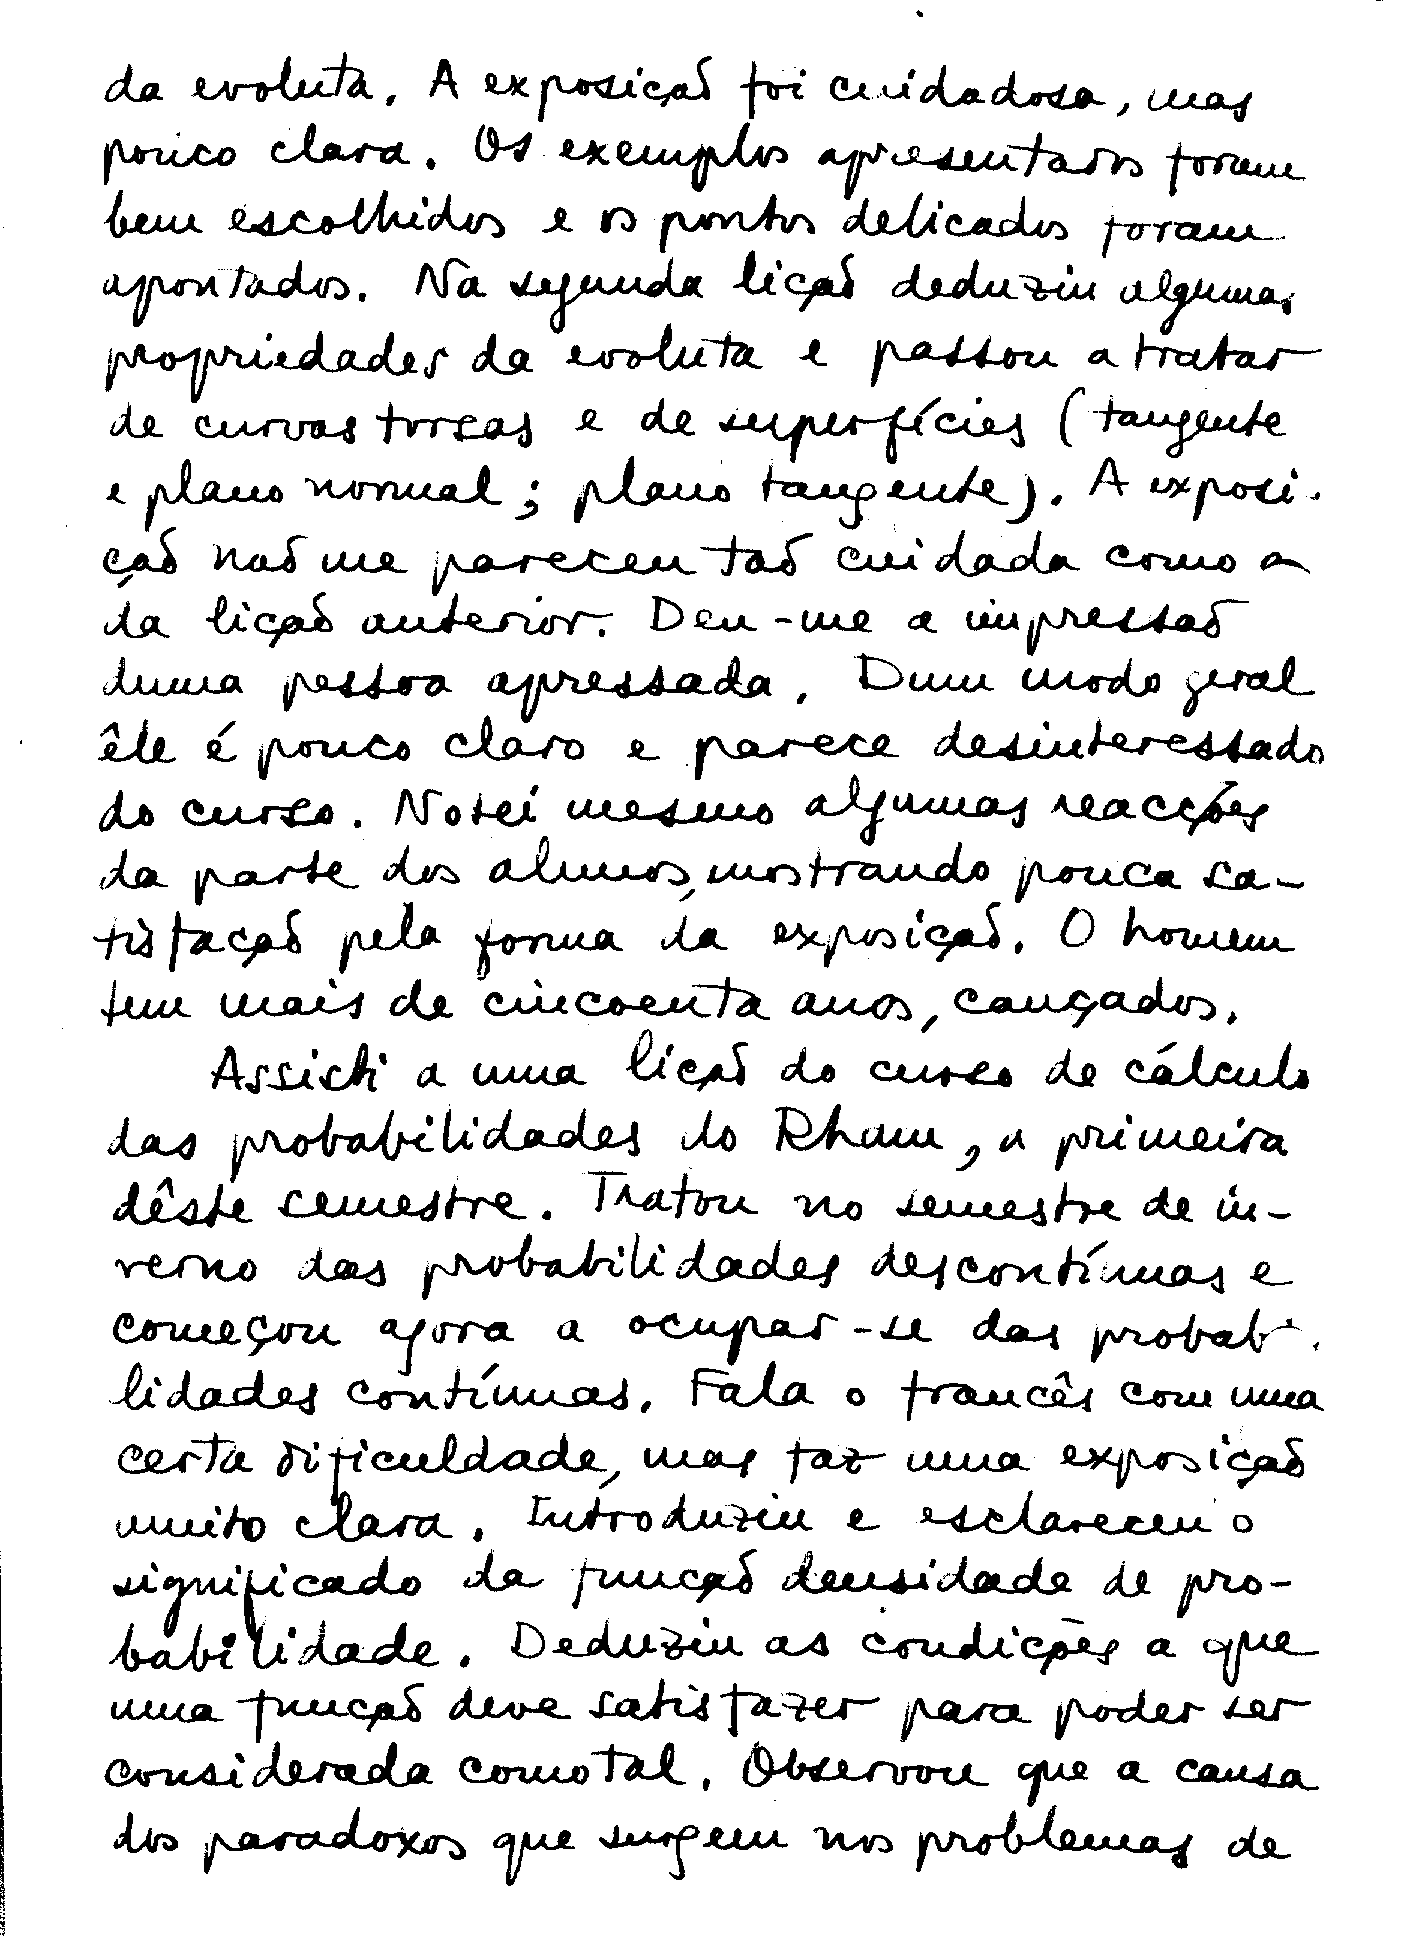 da evoluta. A exposição foi cuidadosa, mas
pouco clara. Os exemplos apresentados foram
bem escolhidos e os pontos delicados foram
apontados. Na segunda lição deduziu algumas
propriedades da evoluta e passou a tratar
de curvas torsas e de superfícies (tangente
e plano normal; plano tangente). A exposi-
ção não me pareceu tão cuidada como a
da lição anterior. Deu-me a impressão
duma pessoa apressada. Dum modo geral
êle é pouco claro e parece desinteressado
do curso. Notei mesmo algumas reacções
da parte dos alunos, mostrando pouca sa-
tisfação pela forma da exposição. O homem
tem mais de cincoenta anos, cançados.
Assisti a uma lição do curso de cálculo
das probabilidades do Rham, a primeira
dêste semestre. Tratou no semestre de in-
verno das probabilidades descontínuas e
começou agora a ocupar-se das probabi-
lidades contínuas. Fala o francês com uma
certa dificuldade, mas faz uma exposição
muito clara. Introduziu e esclareceu o
significado da função densidade de pro-
babilidade. Deduziu as condições a que
uma função deve satisfazer para poder ser
considerada como tal. Observou que a causa
dos paradoxos que surgem nos problemas de